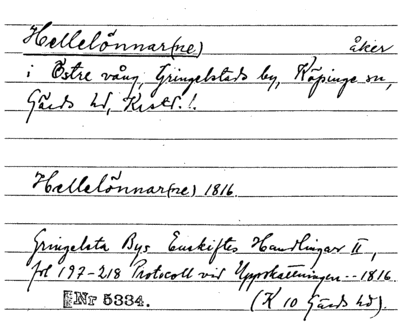 Hellelönnar(ne) åker
i Östre vång, Gringelstads by, Köpinge sn,
Gärds hd, Krst.l.
Hellelönnar(ne) 1816.
Gringelsta Bys Enskiftes Handlingar II,
fol 197-218 Protocoll vid Uppskattningen -- 1816.
Nr 5334. (K 10 Gärds hd).